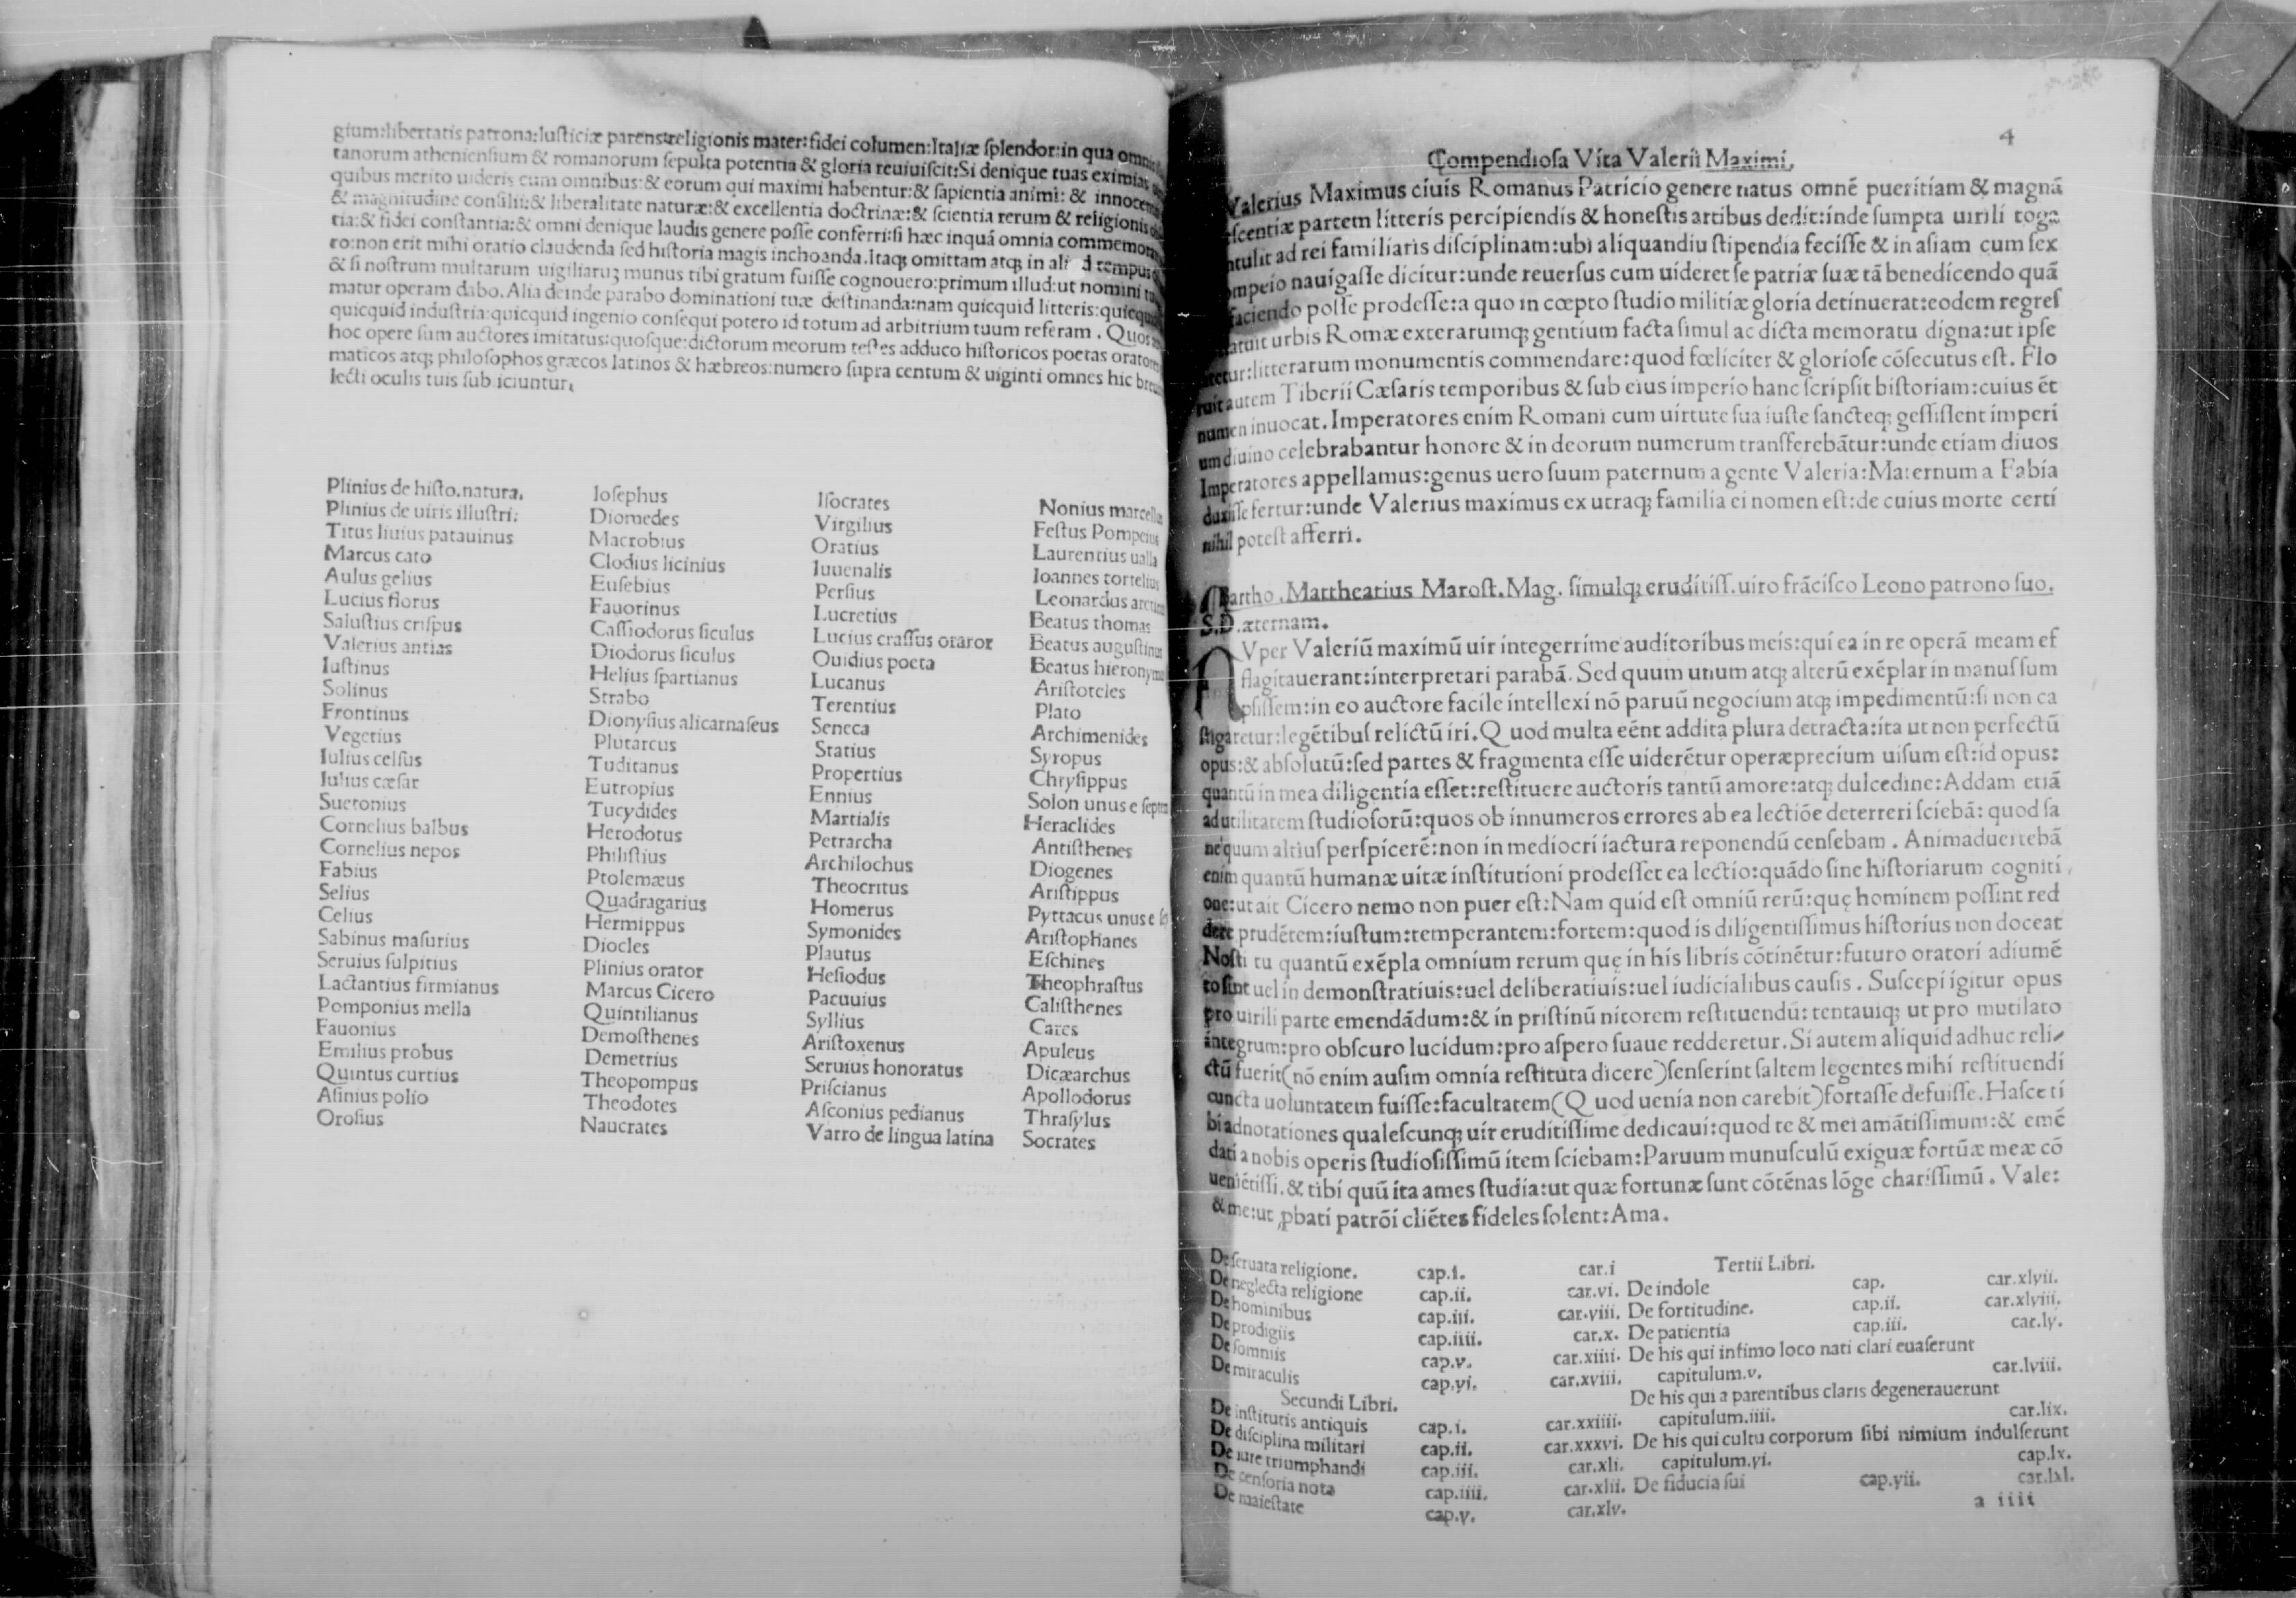 gium:libertatis patrona:Iusticiæ parens:religionis mater:fidei columen:Italiæ splendor:in qua
tanorum atheniensium & romanorum sepulta potentia & gloria reuiuiscit:Si denique tuas eximias
quibus merito uideris cum omnibus:& eorum qui maximi habentur:& sapientia animi:& innocentia
& magnitudine consilii:& liberalitate naturæ:& excellentia doctrinæ:& scientia rerum & religionis
tia:& fidei constantia:& omni denique laudis genere posse conferri:si hæc inquā omnia
ro:non erit mihi oratio claudenda sed historia magis inchoanda.Itaq; omittam atq; in tempus
& si nostrum multarum uigiliaruʒ munus tibi gratum fuisse cognouero:primum illud:ut nomini
matur operam dabo.Alia deinde parabo dominationi tuæ destinanda:nam quicquid litteris:quicquid
quicquid industria:quicquid ingenio consequi potero id totum ad arbitrium tuum referam . Quos
hoc opere sum auctores imitatus:quosque:dictorum meorum testes adduco historicos poetas
maticos atq; philosophos græcos latinos & hæbreos:numero supra centum & uiginti omnes hic
lecti oculis tuis subiiciuntur.
Plinius de histo.natura.
Plinius de uiris illustri:
Titus liuius patauinus
Marcus cato
Aulus gelius
Lucius florus
Salustius crispus
Valerius antias
Iustinus
Solinus
Frontinus
Vegetius
Iulius celsus
Iulius cæsar
Suetonius
Cornelius balbus
Cornelius nepos
Fabius
Selius
Celius
Sabinus masurius
Seruius sulpitius
Lactantius firmianus
Pomponius mella
Fauonius
Emilius probus
Quintus curtius
Asinius polio
Orosius
Iosephus
Diomedes
Macrobius
Clodius licinius
Eusebius
Fauorinus
Cassiodorus siculus
Diodorus siculus
Helius spartianus
Strabo
Dionysius alicarnaseus
Plutarcus
Tuditanus
Eutropius
Tucydides
Herodotus
Philistius
Ptolemæus
Quadragarius
Hermippus
Diocles
Plinius orator
Marcus Cicero
Quintilianus
Demosthenes
Demetrius
Theopompus
Theodotes
Naucrates
Isocrates
Virgilius
Oratius
Iuuenalis
Persius
Lucretius
Lucius crassus orator
Ouidius poeta
Lucanus
Terentius
Seneca
Statius
Propertius
Ennius
Martialis
Petrarcha
Archilochus
Theocritus
Homerus
Symonides
Plautus
Hesiodus
Pacuuius
Syllius
Aristoxenus
Seruius honoratus
Priscianus
Asconius pedianus
Varro de lingua latina
Nonius marcellus
Festus Pompeius
Laurentius ualla
Ioannes tortelius
Leonardus
Beatus thomas
Beatus augustinus
Beatus hieronymus
Aristoteles
Plato
Archimenides
Syropus
Chrysippus
Solon unus e
Heraclides
Antisthenes
Diogenes
Aristippus
Pyttacus unus e
Aristophanes
Eschines
Theophrastus
Calisthenes
Cares
Apuleus
Dicæarchus
Apollodorus
Thrasylus
Socrates
4
Compendiosa Vita Valerii Maximi.
Valerius Maximus ciuis Romanus Patricio genere natus omnē pueritiam & magnā
partem litteris percipiendis & honestis artibus dedit:inde sumpta uirili toga
ad rei familiaris disciplinam:ubi aliquandiu stipendia fecisse & in asiam cum sex
nauigasse dicitur:unde reuersus cum uideret se patriæ suæ tā benedicendo quā
faciendo posse prodesse:a quo in cœpto studio militiæ gloria detinuerat:eodem regres
urbis Romæ exterarumq; gentium facta simul ac dicta memoratu digna:ut ipse
litterarum monumentis commendare:quod fœliciter & gloriose cōsecutus est. Flo
ruit autem Tiberii Cæsaris temporibus & sub eius imperio hanc scripsit historiam:cuius ēt
numen inuocat.Imperatores enim Romani cum uirtute sua iuste sancteq; gessissent imperi
um diuino celebrabantur honore & in deorum numerum transferebātur:unde etiam diuos
Imperatores appellamus:genus uero suum paternum a gente Valeria:Maternum a Fabia
duxisse fertur:unde Valerius maximus ex utraq; familia ei nomen est:de cuius morte certi
nihil potest afferri.
Bartho.Mattheatius Marost.Mag. simulq; eruditiss.uiro frācisco Leono patrono suo.
S.D.æternam.
NVper Valeriū maximū uir integerrime auditoribus meis:qui ea in re operā meam ef
flagitauerant:interpretari parabā. Sed quum unum atq; alterū exēplar in manus sum
psissem:in eo auctore facile intellexi nō paruū negocium atq; impedimentū:si non ca
stigaretur:legētibus relictū iri.Quod multa eēnt addita plura detracta:ita ut non perfectū
opus:& absolutū:sed partes & fragmenta esse uiderētur operæprecium uisum est:id opus:
quantū in mea diligentia esset:restituere auctoris tantū amore:atq; dulcedine:Addam etiā
ad utilitatem studiosorū:quos ob innumeros errores ab ea lectiōe deterreri sciebā: quod sa
ne quum altius perspicerē:non in mediocri iactura reponendū censebam . Animaduertebā
enim quantū humanæ uitæ institutioni prodesset ea lectio:quādo sine historiarum cogniti
one:ut ait Cicero nemo non puer est:Nam quid est omniū rerū:quę hominem possint red
dere prudētem:iustum:temperantem:fortem:quod is diligentissimus historius non doceat
Nosti tu quantū exēpla omnium rerum quę in his libris cōtinētur:futuro oratori adiumē
to sint uel in demonstratiuis:uel deliberatiuis:uel iudicialibus causis . Suscepi igitur opus
pro uirili parte emendādum:& in pristinū nitorem restituendū: tentauiq; ut pro mutilato
integrum:pro obscuro lucidum:pro aspero suaue redderetur.Si autem aliquid adhuc reli-
ctū fuerit(nō enim ausim omnia restituta dicere)senserint saltem legentes mihi restituendi
cuncta uoluntatem fuisse:facultatem(Quod uenia non carebit)fortasse defuisse.Hasce ti
bi adnotationes qualescunq; uir eruditissime dedicaui:quod te & mei amātissimum:& emē
dati a nobis operis studiosissimū item sciebam:Paruum munusculū exiguæ fortūæ meæ cō
ueniētissi.& tibi quū ita ames studia:ut quæ fortunæ sunt cōtēnas lōge charissimū . Vale:
& me:ut ꝓbati patrōi cliētes fideles solent:Ama.
De seruata religione. cap.i. car.i
De neglecta religione cap.ii. car.vi.
De hominibus cap.iii. car.viii.
De prodigiis cap.iiii. car.x.
De somniis cap.v. car.xiiii.
De miraculis cap.vi. car.xviii.
Secundi Libri.
De institutis antiquis cap.i. car.xxiiii.
De disciplina militari cap.ii. car.xxxvi.
De iure triumphandi cap.iii. car.xli.
De censoria nota cap.iiii. car.xlii.
De maiestate cap.v. car.xlv.
Tertii Libri.
De indole cap. car.xlvii.
De fortitudine. cap.ii. car.xlviii.
De patientia cap.iii. car.lv.
De his qui infimo loco nati clari euaserunt
capitulum.v. car.lviii.
De his qui a parentibus claris degenerauerunt
capitulum.iiii. car.lix.
De his qui cultu corporum sibi nimium indulserunt
capitulum.vi. cap.lx.
De fiducia sui cap.vii. car.lxi.
a iiii